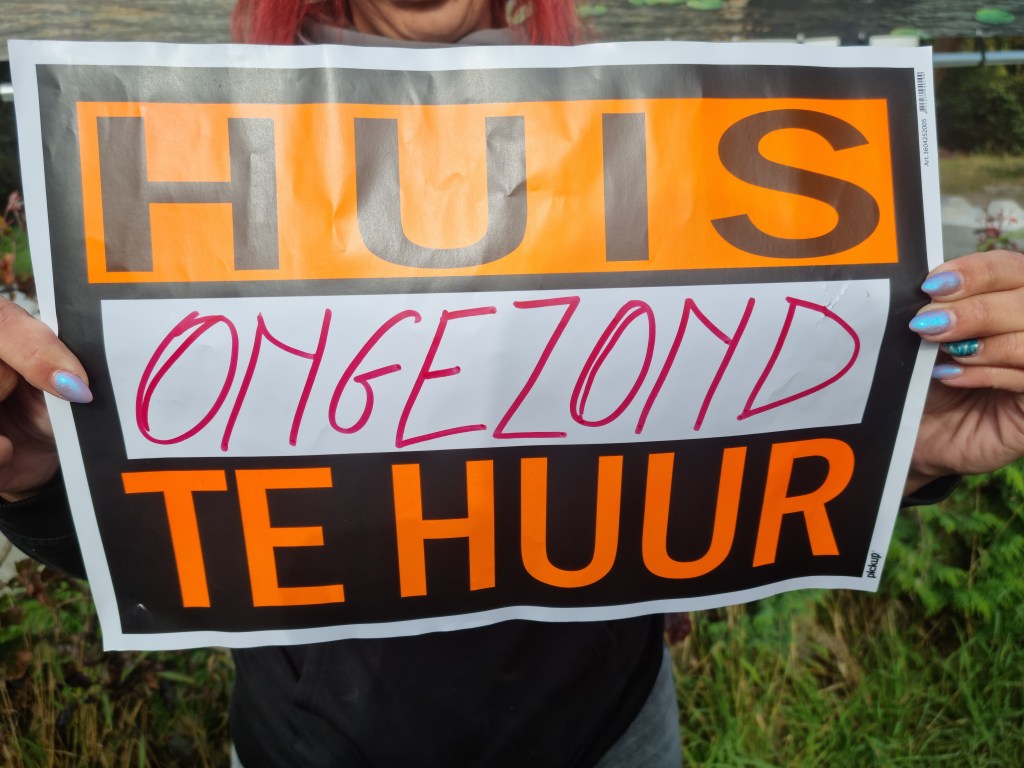 HUIS
ONGEZOND
TE HUUR
Art. 3604252006
pickup